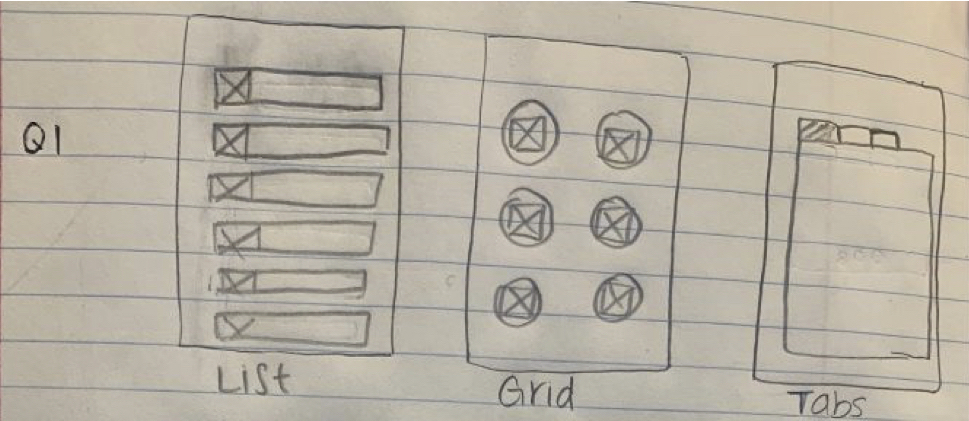 Q1
List
Grid
Tabs